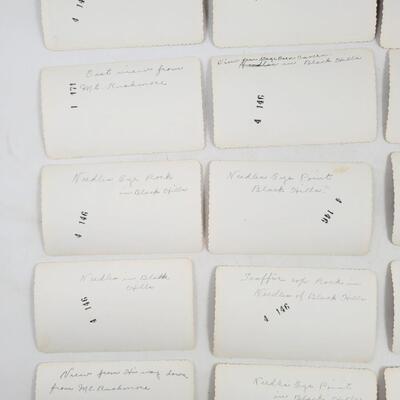 4 146
4
East view from
Mt. Rushmore
1 171
View from
in Black Hills
4 146
Needles Eye Rock
in Black Hills
4 146
Needles Eye Point
Black Hills.
4 146
Needles in Black
Hills
4 146
Rock in
Needles of Black Hills
4 146
View from way down
from Mt. Rushmore
Needles Eye Point
in Black Hills